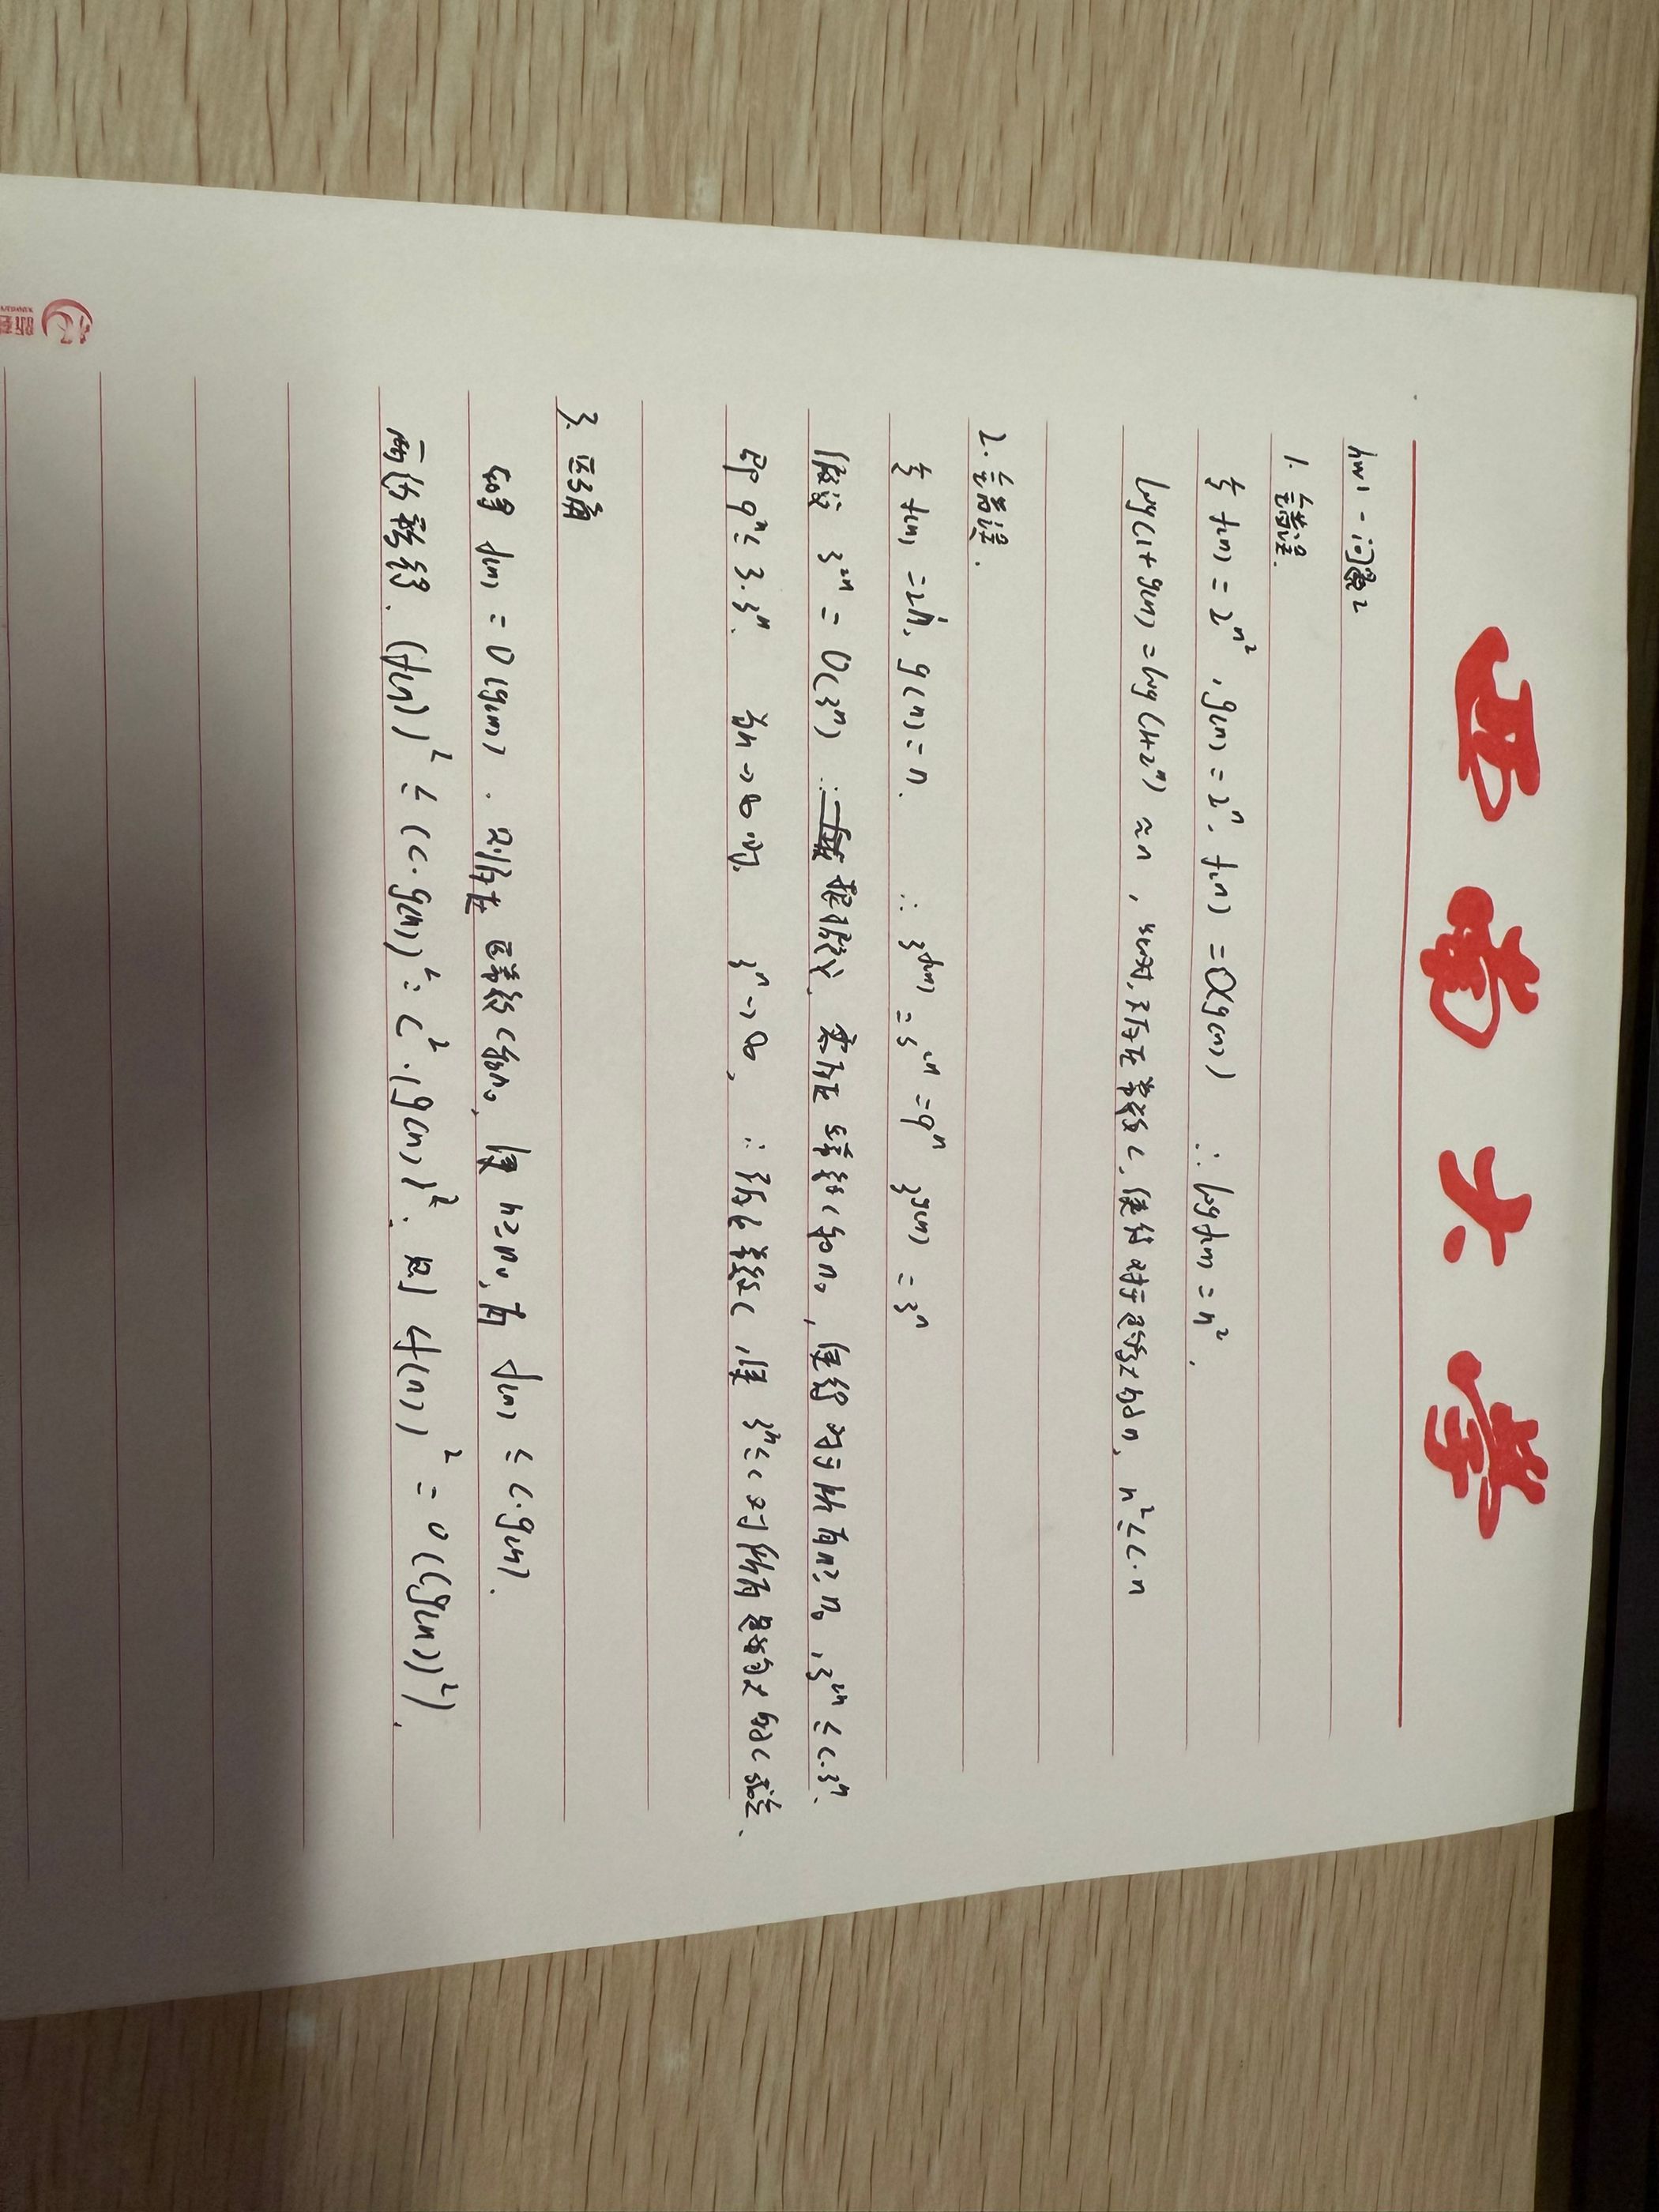 西南大学
hw1 - 问题2
1. 错误.
令 f(n) = 2^{n^2}, g(n) = 2^n. f(n) = O(g(n)) ∴ log f(n) = n^2.
log(1+g(n)) = log(1+2^n) ≈ n, 此时, 不存在常数c, 使得对于足够大的n, n^2 ≤ c·n
2. 错误.
令 f(n) = 2n, g(n) = n. ∴ 3^{f(n)} = 3^{2n} = 9^n 3^{g(n)} = 3^n
假设 3^{2n} = O(3^n) 根据定义, 需存在正常数c和n_0, 使得对于所有n≥n_0, 3^{2n} ≤ c·3^n.
即 9^n ≤ 3·3^n. 当n→∞时, 3^n→∞, ∴不存在常数c, 使 3^n ≤ c 对所有足够大的c成立.
3. 正确
如果 f(n) = O(g(n)). 则存在正常数c和n_0, 使 n≥n_0, 有 f(n) ≤ c·g(n).
两边 得. (f(n))^2 ≤ (c·g(n))^2 = c^2·(g(n))^2. 则 (f(n))^2 = O((g(n))^2).